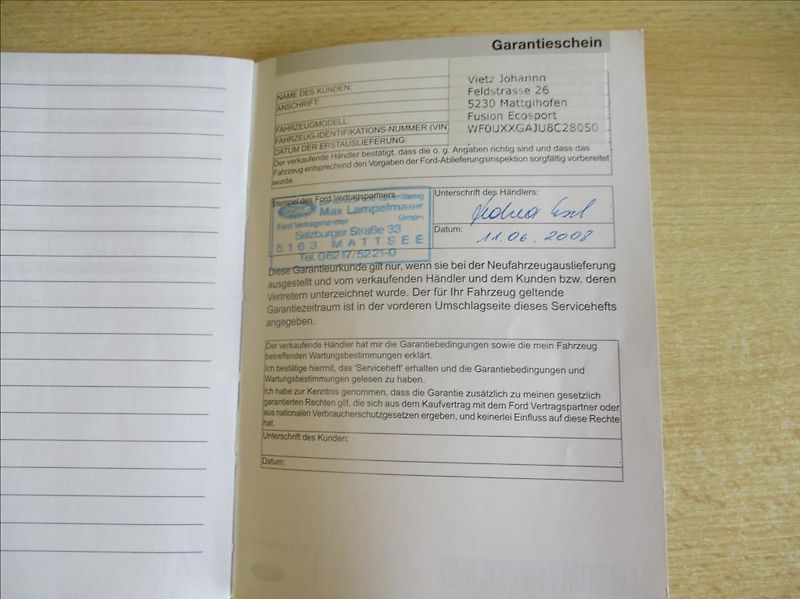 Garantieschein
NAME DES KUNDEN:
ANSCHRIFT:
Vietz Johannn
Feldstrasse 26
5230 Mattgihofen
Fusion Ecosport
WF0UXXGAJU8C28050
FAHRZEUGMODELL:
FAHRZEUG-IDENTIFIKATIONS-NUMMER (VIN
DATUM DER ERSTAUSLIEFERUNG:
Der verkaufende Händler bestätigt, dass die o. g. Angaben richtig sind und dass das
Fahrzeug entsprechend den Vorgaben der Ford-Ablieferungsinspektion sorgfältig vorbereitet
wurde.
Stempel des Ford Vertragspartners
Max Lampelmaier
GmbH
Ford Vertragshändler
Salzburger Straße 33
5163 MATTSEE
Tel. 06217/5221-0
Unterschrift des Händlers:
Datum:
11.06.2008
Diese Garantieurkunde gilt nur, wenn sie bei der Neufahrzeugauslieferung
ausgestellt und vom verkaufenden Händler und dem Kunden bzw. deren
Vertretern unterzeichnet wurde. Der für Ihr Fahrzeug geltende
Garantiezeitraum ist in der vorderen Umschlagseite dieses Servicehefts
angegeben.
Der verkaufende Händler hat mir die Garantiebedingungen sowie die mein Fahrzeug
betreffenden Wartungsbestimmungen erklärt.
Ich bestätige hiermit, das 'Serviceheft' erhalten und die Garantiebedingungen und
Wartungsbestimmungen gelesen zu haben.
Ich habe zur Kenntnis genommen, dass die Garantie zusätzlich zu meinen gesetzlich
garantierten Rechten gilt, die sich aus dem Kaufvertrag mit dem Ford Vertragspartner oder
aus nationalen Verbraucherschutzgesetzen ergeben, und keinerlei Einfluss auf diese Rechte
hat.
Unterschrift des Kunden:
Datum: